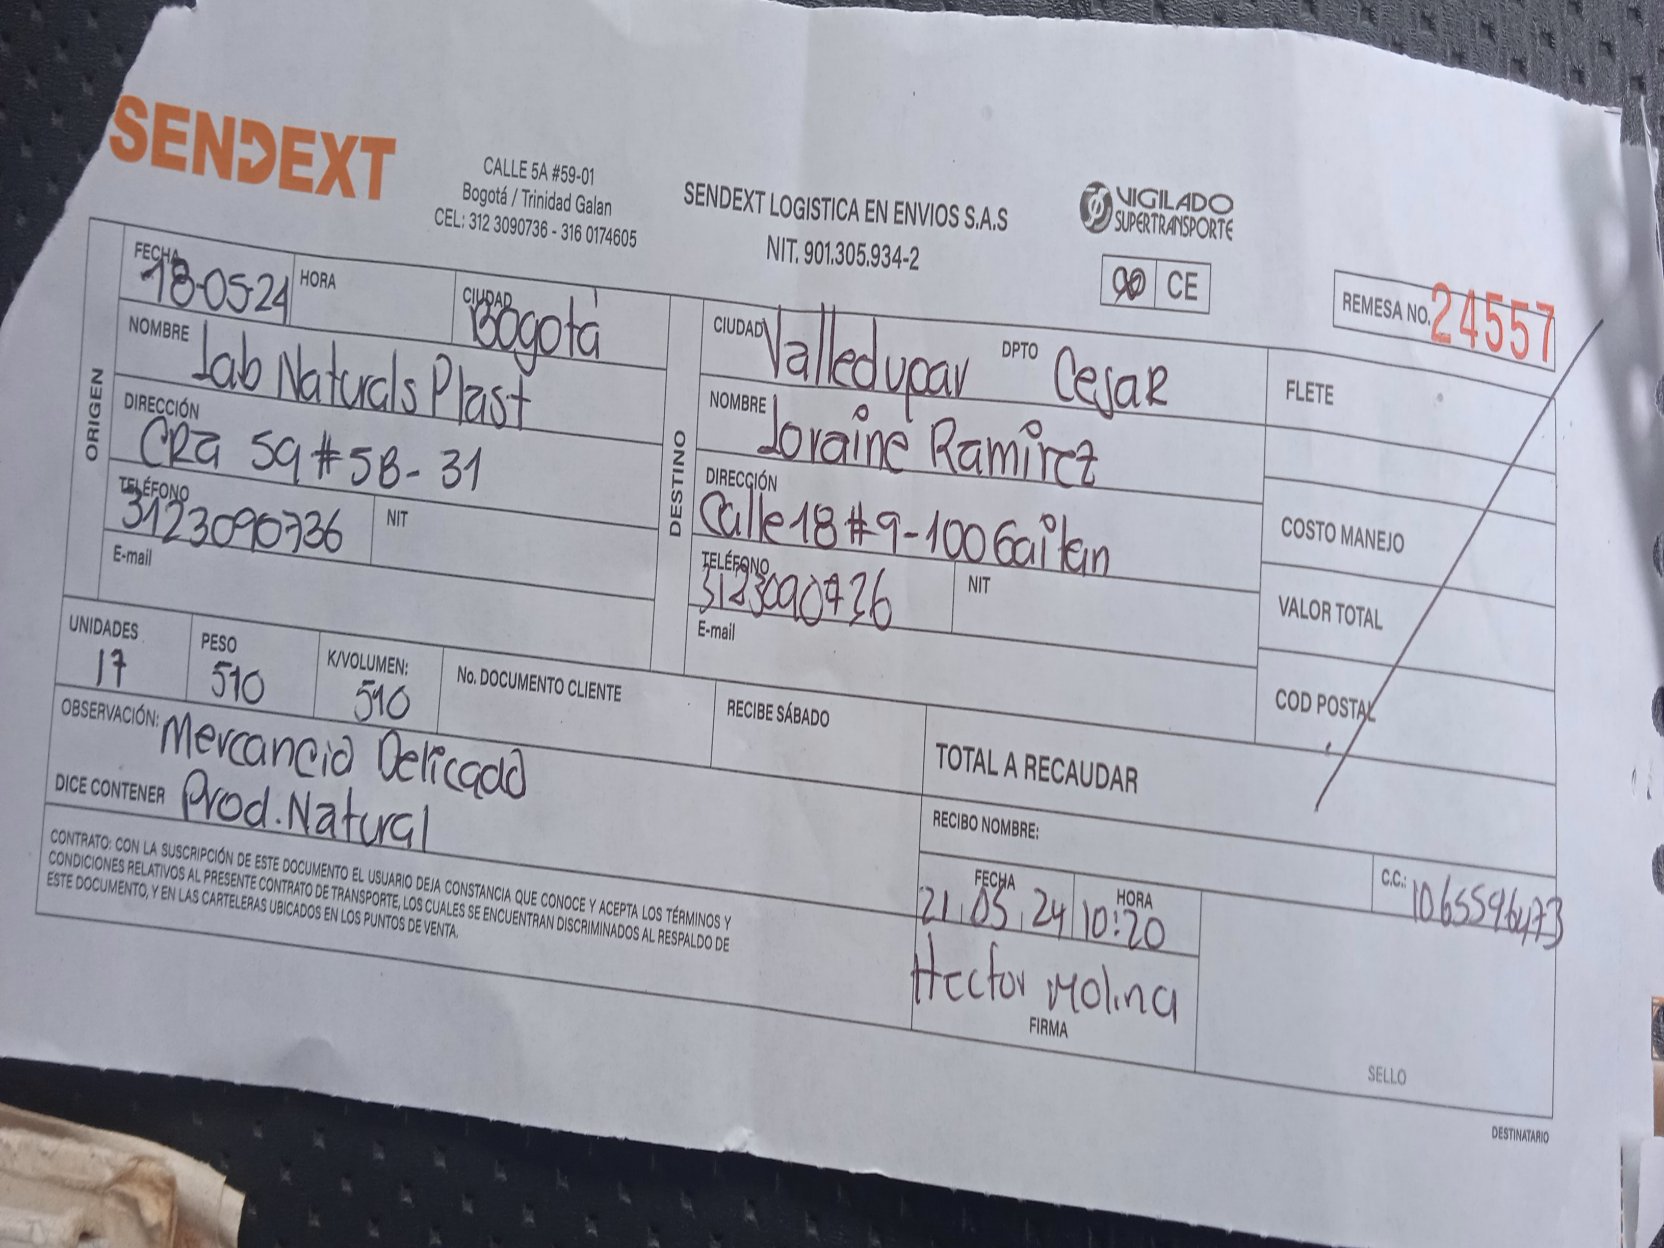 SENDEXT
CALLE 5A #59-01
Bogotá / Trinidad Galan
CEL: 312 3090736 - 316 0174605
SENDEXT LOGISTICA EN ENVIOS S.A.S
NIT. 901.305.934-2
VIGILADO
SUPERTRANSPORTE
CE
REMESA NO. 24557
ORIGEN
FECHA 18-05-24
HORA
CIUDAD Bogotá
NOMBRE Lab Naturals Plast
DIRECCIÓN CRa 59 # 5B - 31
TELÉFONO 3123090736
NIT
E-mail
DESTINO
CIUDAD Valledupar DPTO CesaR
NOMBRE Loraine Ramirez
DIRECCIÓN Calle 18 # 9-100 Gaitan
TELÉFONO 3123090736
NIT
E-mail
FLETE
COSTO MANEJO
VALOR TOTAL
COD POSTAL
UNIDADES 17
PESO 510
K/VOLUMEN: 510
No. DOCUMENTO CLIENTE
RECIBE SÁBADO
OBSERVACIÓN: Mercancia Delicada
DICE CONTENER Prod. Natural
TOTAL A RECAUDAR
RECIBO NOMBRE:
C.C.: 1065596473
FECHA 21 05 24
HORA 10:20
Hector Molina
FIRMA
SELLO
CONTRATO: CON LA SUSCRIPCIÓN DE ESTE DOCUMENTO EL USUARIO DEJA CONSTANCIA QUE CONOCE Y ACEPTA LOS TÉRMINOS Y
CONDICIONES RELATIVOS AL PRESENTE CONTRATO DE TRANSPORTE, LOS CUALES SE ENCUENTRAN DISCRIMINADOS AL RESPALDO DE
ESTE DOCUMENTO, Y EN LAS CARTELERAS UBICADOS EN LOS PUNTOS DE VENTA.
DESTINATARIO